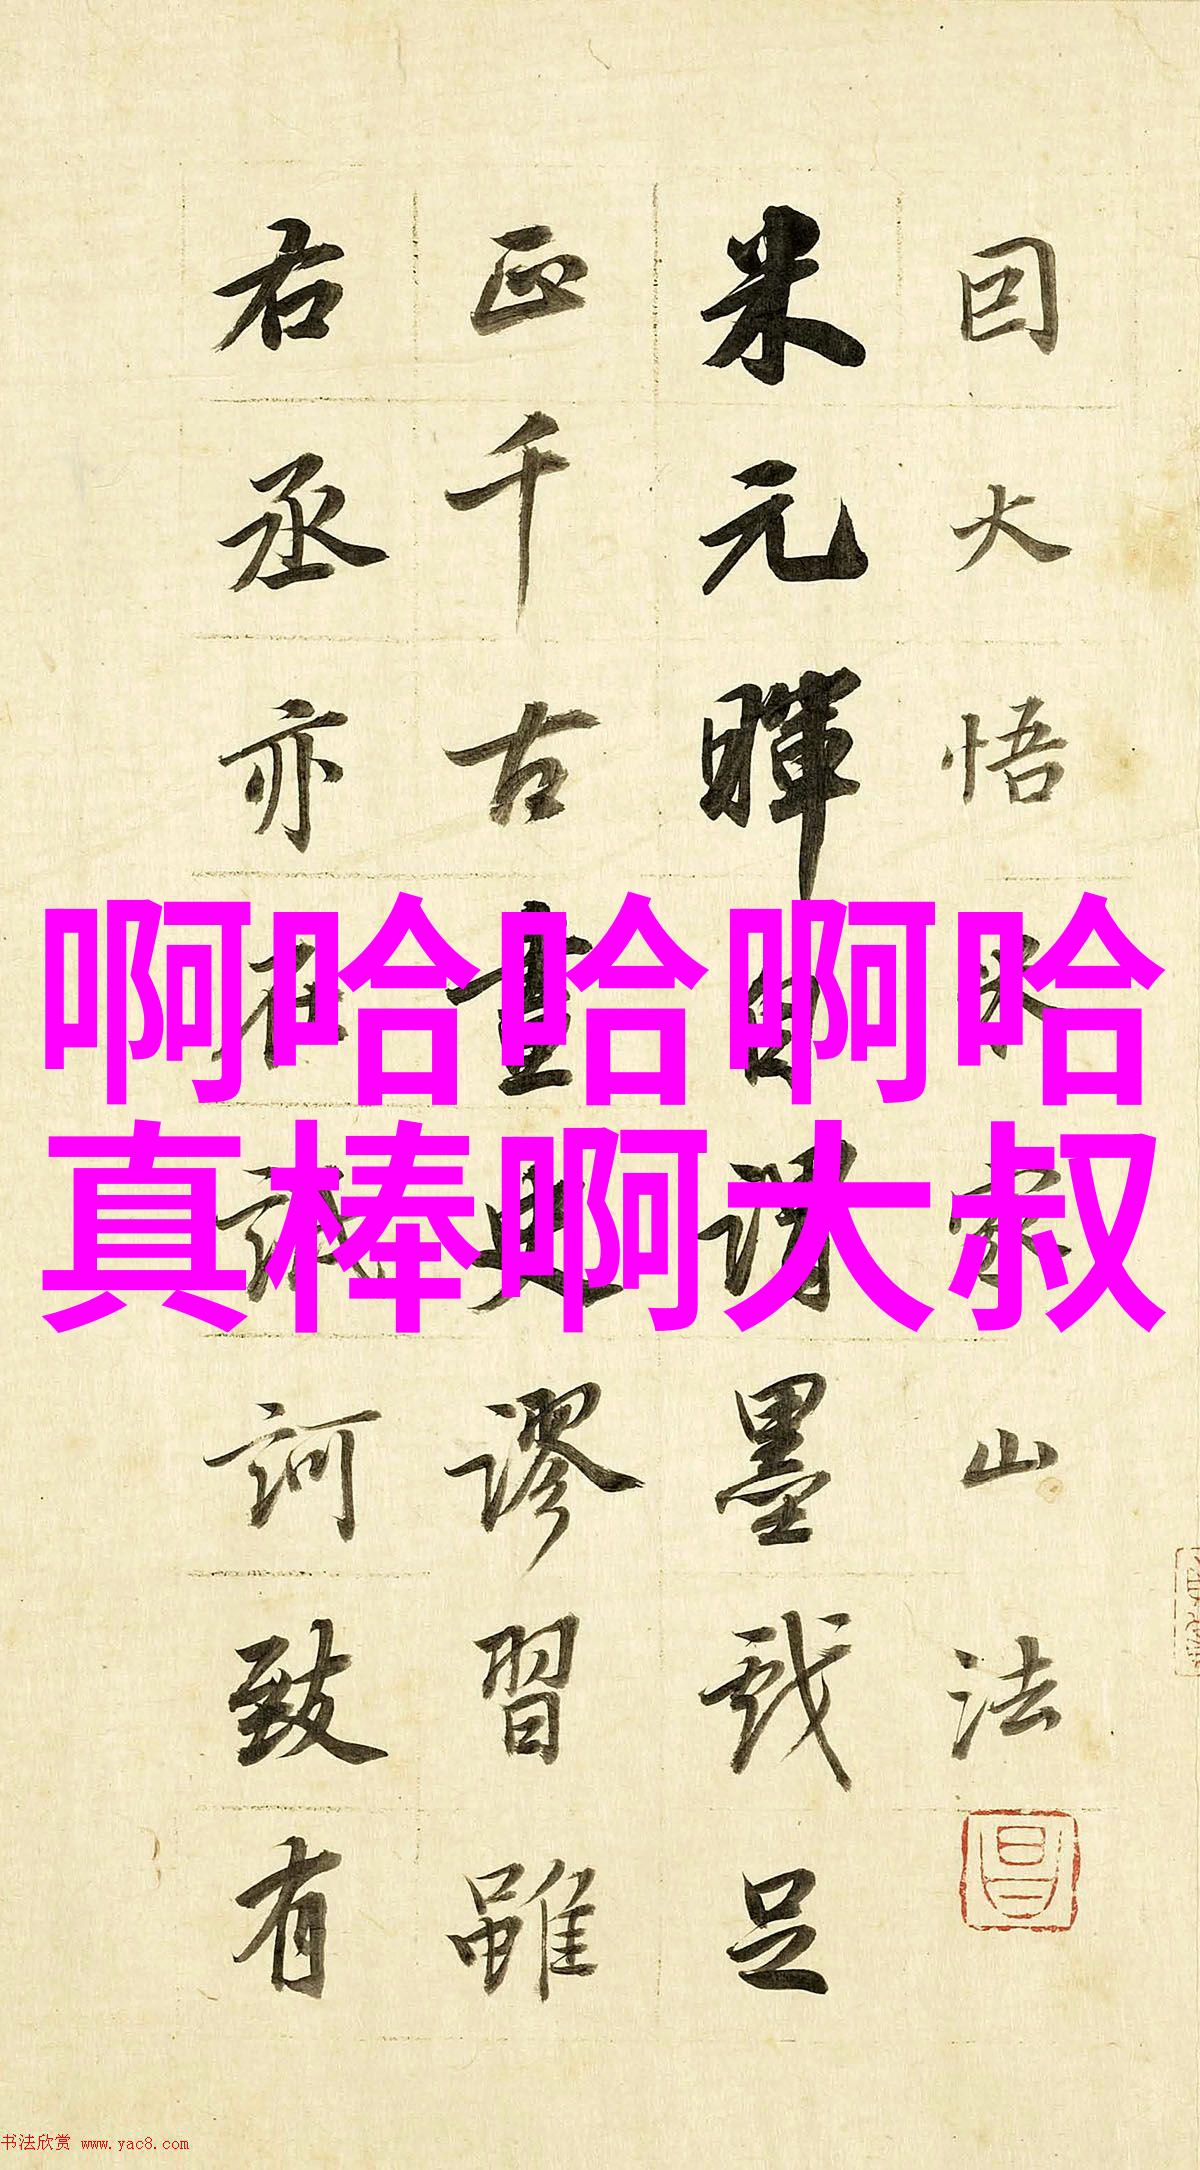 因大悟米家山法
米元暉自謂墨戲足
正千古畫史謬習雖
右丞亦在詆訶致有
啊哈哈啊哈
真棒啊大叔
昌
书法欣赏 www.yac8.com